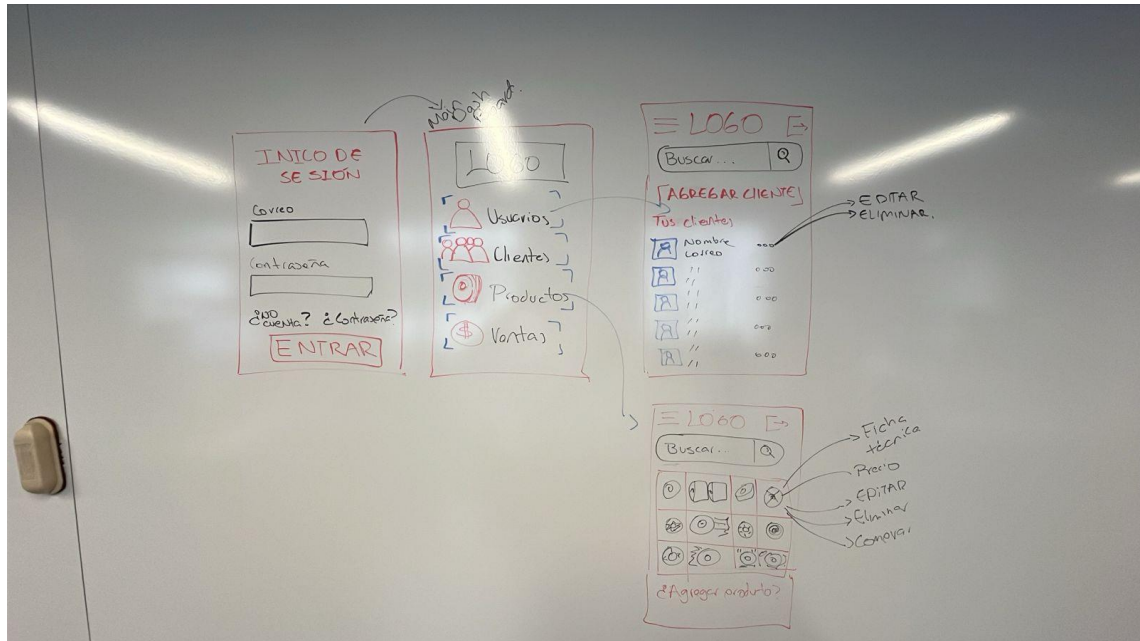 INICO DE
SESIÓN
Correo
Contraseña
¿NO
CUENTA? ¿Contraseña?
ENTRAR
LOGO
Usuarios
Clientes
Productos
Ventas
LOGO
Buscar...
[AGREGAR CLIENTE]
Tus clientes
Nombre
Correo
EDITAR
ELIMINAR.
LOGO
Buscar...
Ficha
técnica
Precio
EDITAR
Eliminar
¿Agregar producto?